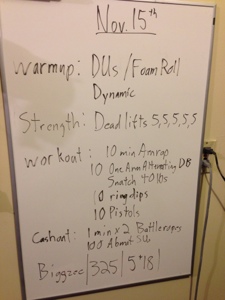 Nov. 15th
Warmup: DUs / Foam Roll
Dynamic
Strength: Dead lifts 5,5,5,5,5
Workout: 10 min Amrap
10 One Arm Alternating DB
Snatch 40 lbs
10 ring dips
10 Pistols
Cashout: 1 min x 2 Battleropes
100 Abmat SU
325 | 5"18 |